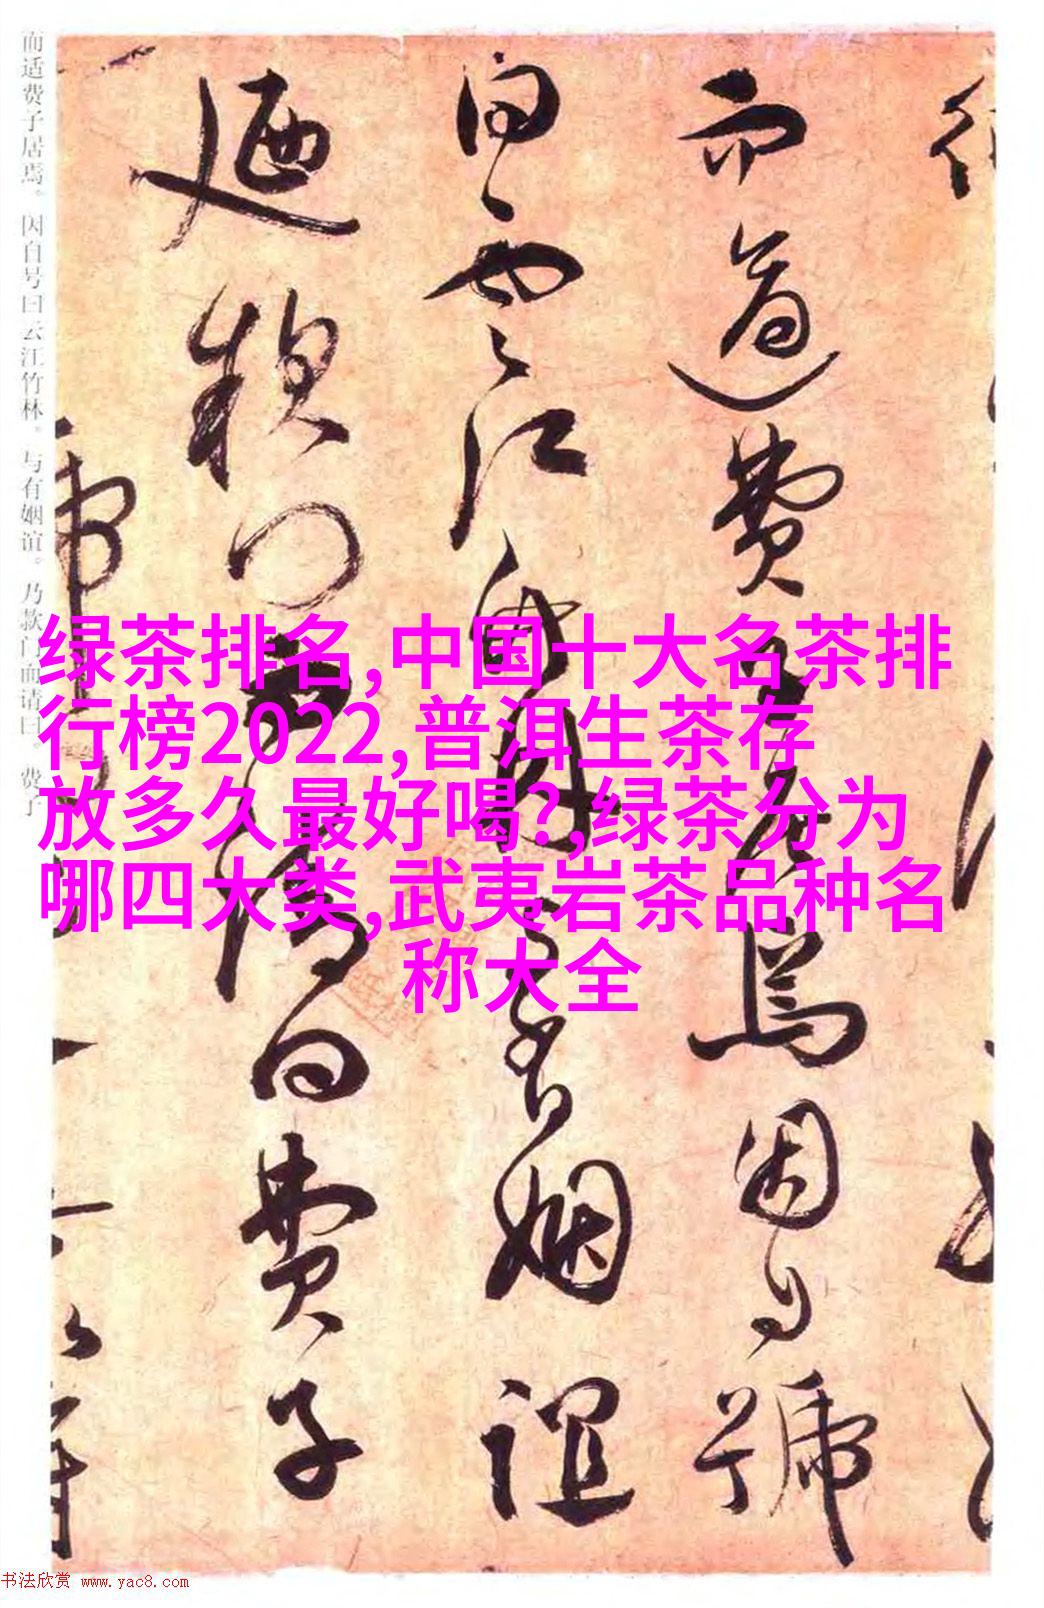 而适费子居焉。因自号曰云江竹林。与有姻谊。乃款门而请曰。费子
而适费居焉因自號
曰云江竹林与有姻誼
迺款门而请曰费子
绿茶排名,中国十大名茶排
行榜2022,普洱生茶存
放多久最好喝?,绿茶分为
哪四大类,武夷岩茶品种名
称大全
书法欣赏 www.yac8.com